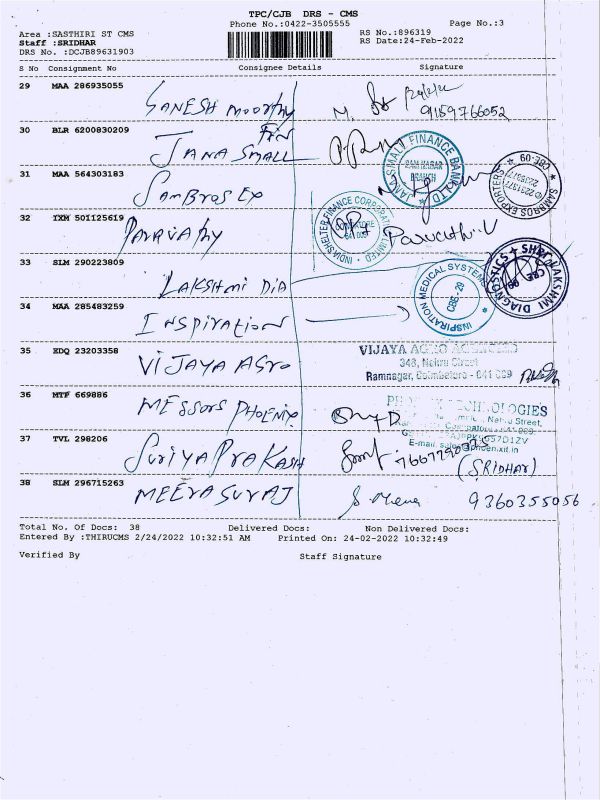 TPC/CJB DRS - CMS
Phone No.:0422-3505555
Page No.:3
Area :SASTHIRI ST CMS
RS No.:896319
Staff :SRIDHAR
RS Date:24-Feb-2022
DRS No. :DCJB89631903
S No Consignment No Consignee Details Signature
29 MAA 286935055 GANESH MOORTHY
91159766052
30 BLR 6200830209 JANA SMALL FIN
JANA SMALL FINANCE BANK LTD
RAMNAGAR BRANCH
31 MAA 564303183 SAMBROS EX
SAMBROS EXPORTERS CBE-09
32 IXM 501125619 PARVATHY
INDIA SHELTER FINANCE CORPORATION LIMITED
Parvathi.V
33 SLM 290223809 LAKSHMI DIA
LAKSHMI DIAGNOSTICS
34 MAA 285483259 INSPIRATION
INSPIRATION MEDICAL SYSTEMS CBE-29
35 EDQ 23203358 VIJAYA AGRO
VIJAYA AGRO AGENCIES
348, Nehru Street
Ramnagar, Coimbatore - 641 009
36 MTF 669886 MESSORS PHOENIX
TECHNOLOGIES
Nehru Street,
Coimbatore
E-mail.
37 TVL 298206 SURIYA PRAKASH
(SRIDHAR)
38 SLM 296715263 MEERA SURAJ
9360355056
Total No. Of Docs: 38 Delivered Docs: Non Delivered Docs:
Entered By :THIRUCMS 2/24/2022 10:32:51 AM Printed On: 24-02-2022 10:32:49
Verified By Staff Signature